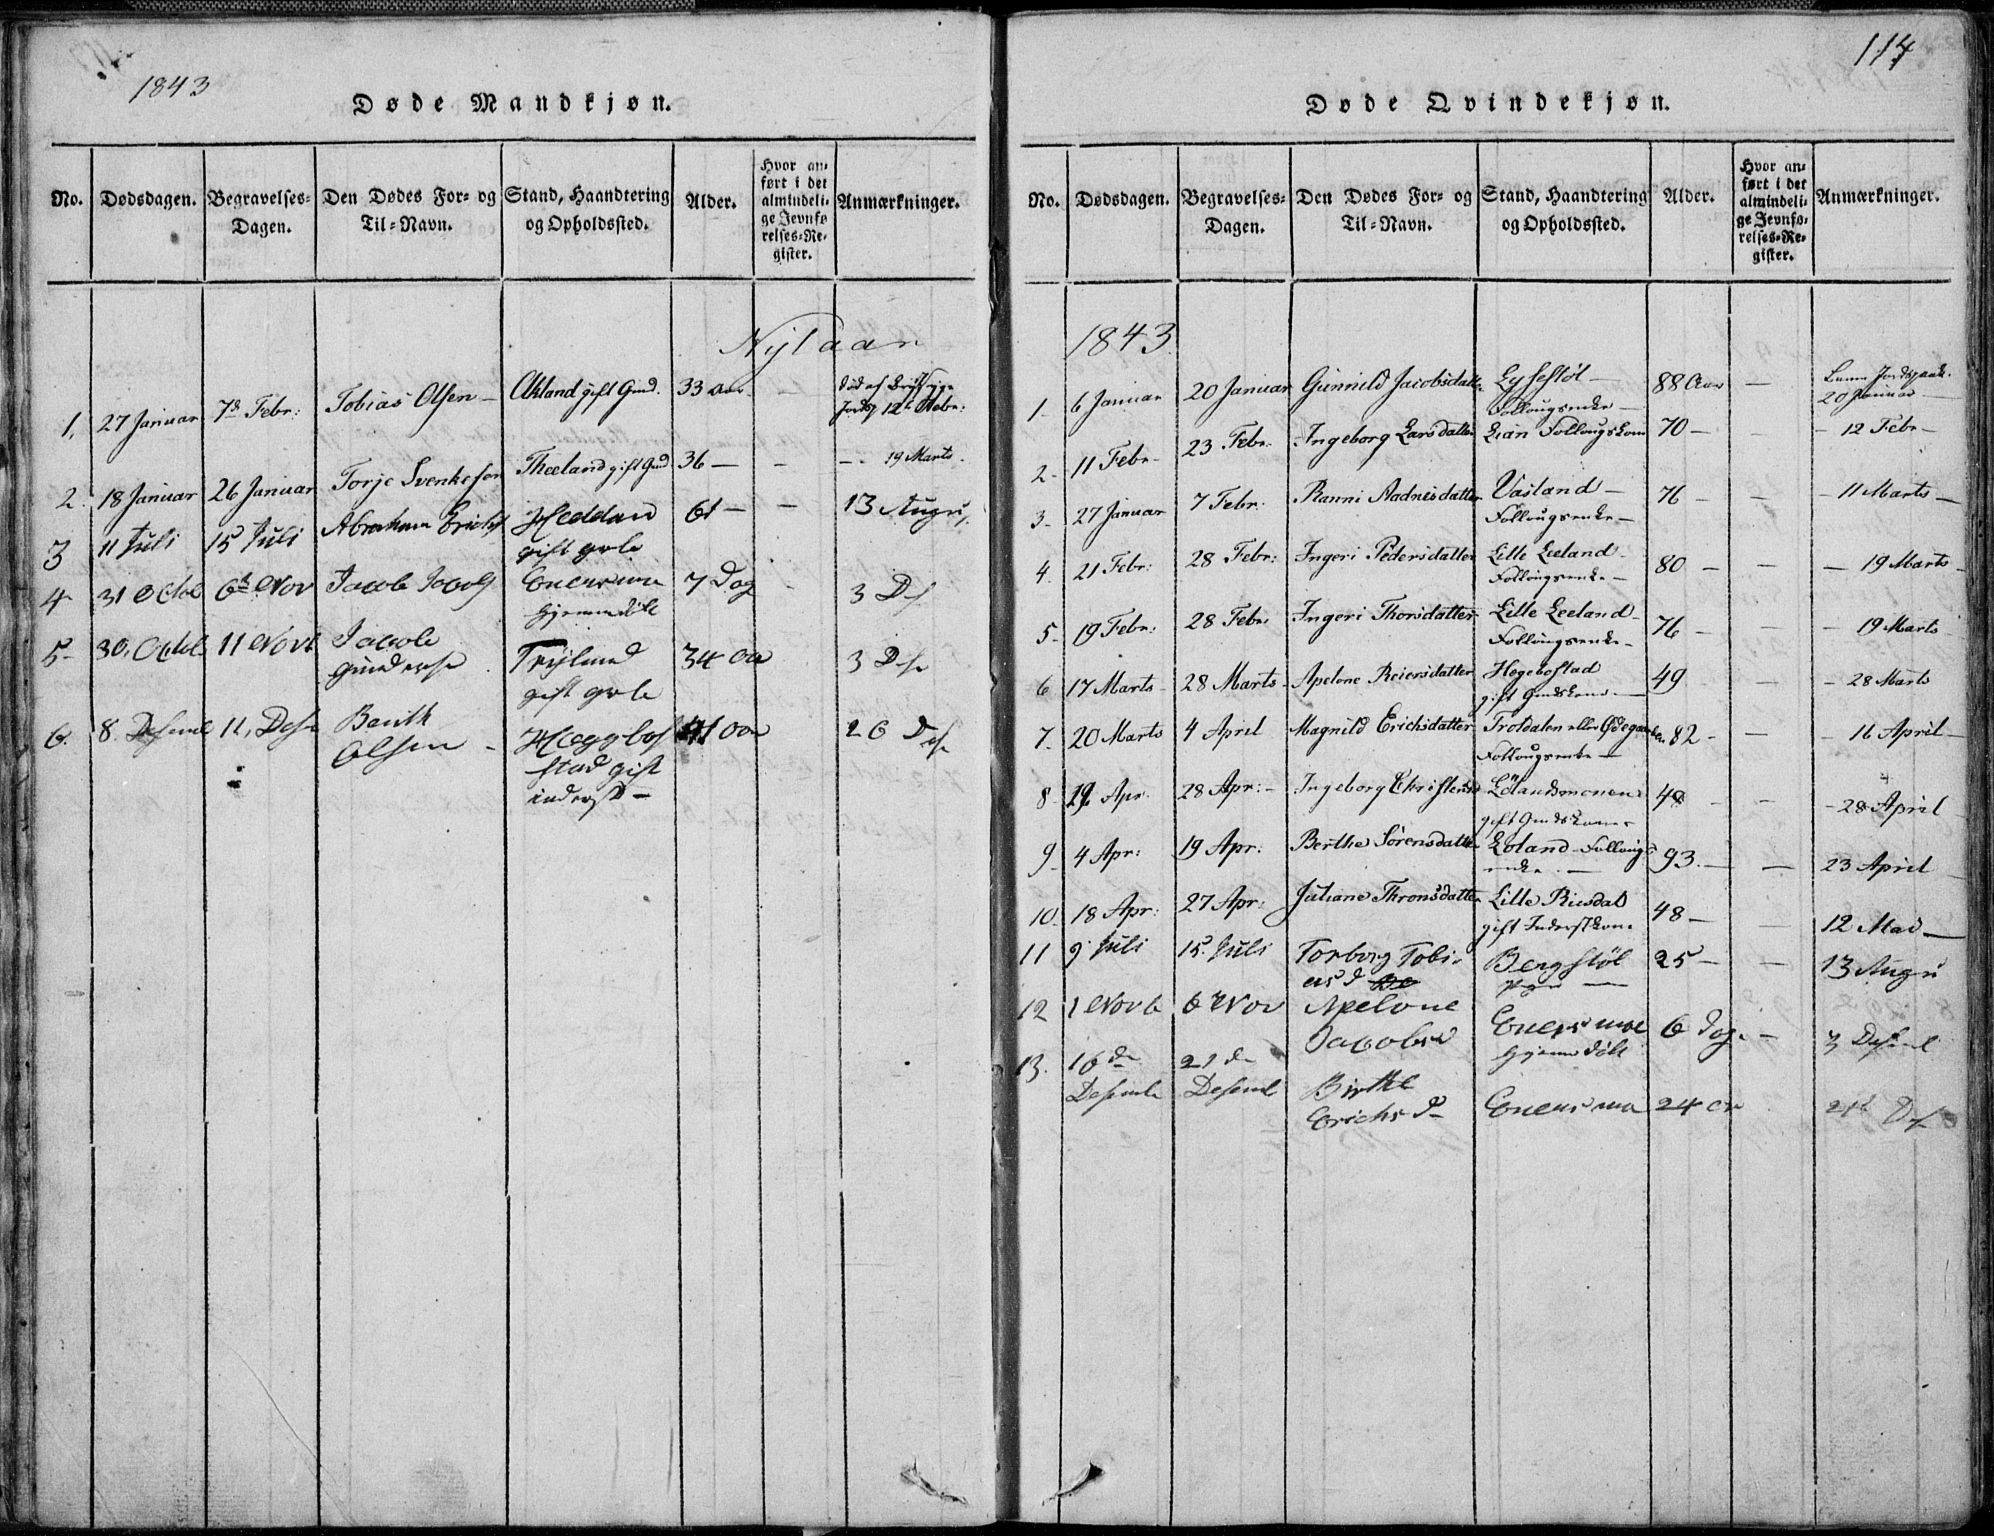 1843
Døde Mandkjøn.
No. Dødsdagen. Begravelses-Dagen. Den Dødes For- og Til-Navn. Stand, Haandtering og Opholdssted. Alder. Hvor anført i det almindelige Jevnførelses-Register. Anmærkninger.
Nytaar
1, 27 Januar 7de Febr: Tobias Olsen Akland gift Gmd. 33 Aar 12te Febr:
2. 18 Januar 26 Januar Torje Svenkesen gift Gmd 36 — - — 19 Marts.
3 11 Juli 15 Juli Abraham Erichs Heddan gift 61 — — 13 Augu
4 31 Octob 6te Nov Jacob Jacobs hjemmedøbt 7 Dag - 3 Des
5- 30, Octob 11 Novb Jacob Gunderse gift 34 aar 3 Dese
6. 8 Desemb 11, Dese Bernth Olsen - Heggbostad gift inderst — 41 aar 26 Dese
114
Døde Qvindekjøn.
No. Dødsdagen. Begravelses-Dagen. Den Dødes For- og Til-Navn. Stand, Haandtering og Opholdssted. Alder. Hvor anført i det almindelige Jevnførelses-Register. Anmærkninger.
1843
1- 6 Januar 20 Januar Gunnild Jacobsdatter Follaugsenke — 88 Aar — 20 Januar —
2- 11 Febr- 23 Febr. Ingeborg Larsdatter Lian Follaugskone 70 — - 12 Febr —
3- 27 Januar 7 Febr: Ranni Aadnesdatter Vasland — Follaugsenke — 76 — — - 11 Marts —
4. 21 Febr: 28 Febr: Ingeri Pedersdatter Lille Eeland - Follaugsenke — 80 — — — 19 Marts -
5- 19 Febr: 28 Febr: Ingeri Thorsdatter Lille Eeland - Follaugsenke - 76 — — - 19 Marts
6 17 Marts - 28 Marts - Apelone Reiersdatter Hegebostad gift Gmdskone — 49 - 28 Marts
7- 20 Marts 4 April Magnild Erichsdatter Trotdalen eller Ødegaarden Follaugsenke — 82 - — - 16 April —
8 Apr. 28 Apr: - Ingeborg Christensd gift Gmdskone 48 - — - 28 April
9- 4 Apr: 19 Apr: Berthe Sörensdatter Follaugsenke. — 93. — — 23 April
10 18 Apr: 27 Apr: Juliane Thronsdatter Lille Riisdal gift Inderstkone 48 — — 12 Mai —
11 9 Juli 15. Juli Torborg Tobiasd Bergstöl Pige — 25 — — 13 Augu
12 1 Novb 6 Nov Apelone Jacobsd hjemmedøbt 6 Dag. — 3 Desemb
13. 16de Desemb 21 de Desemb Birthe Erichsd- 24 ar